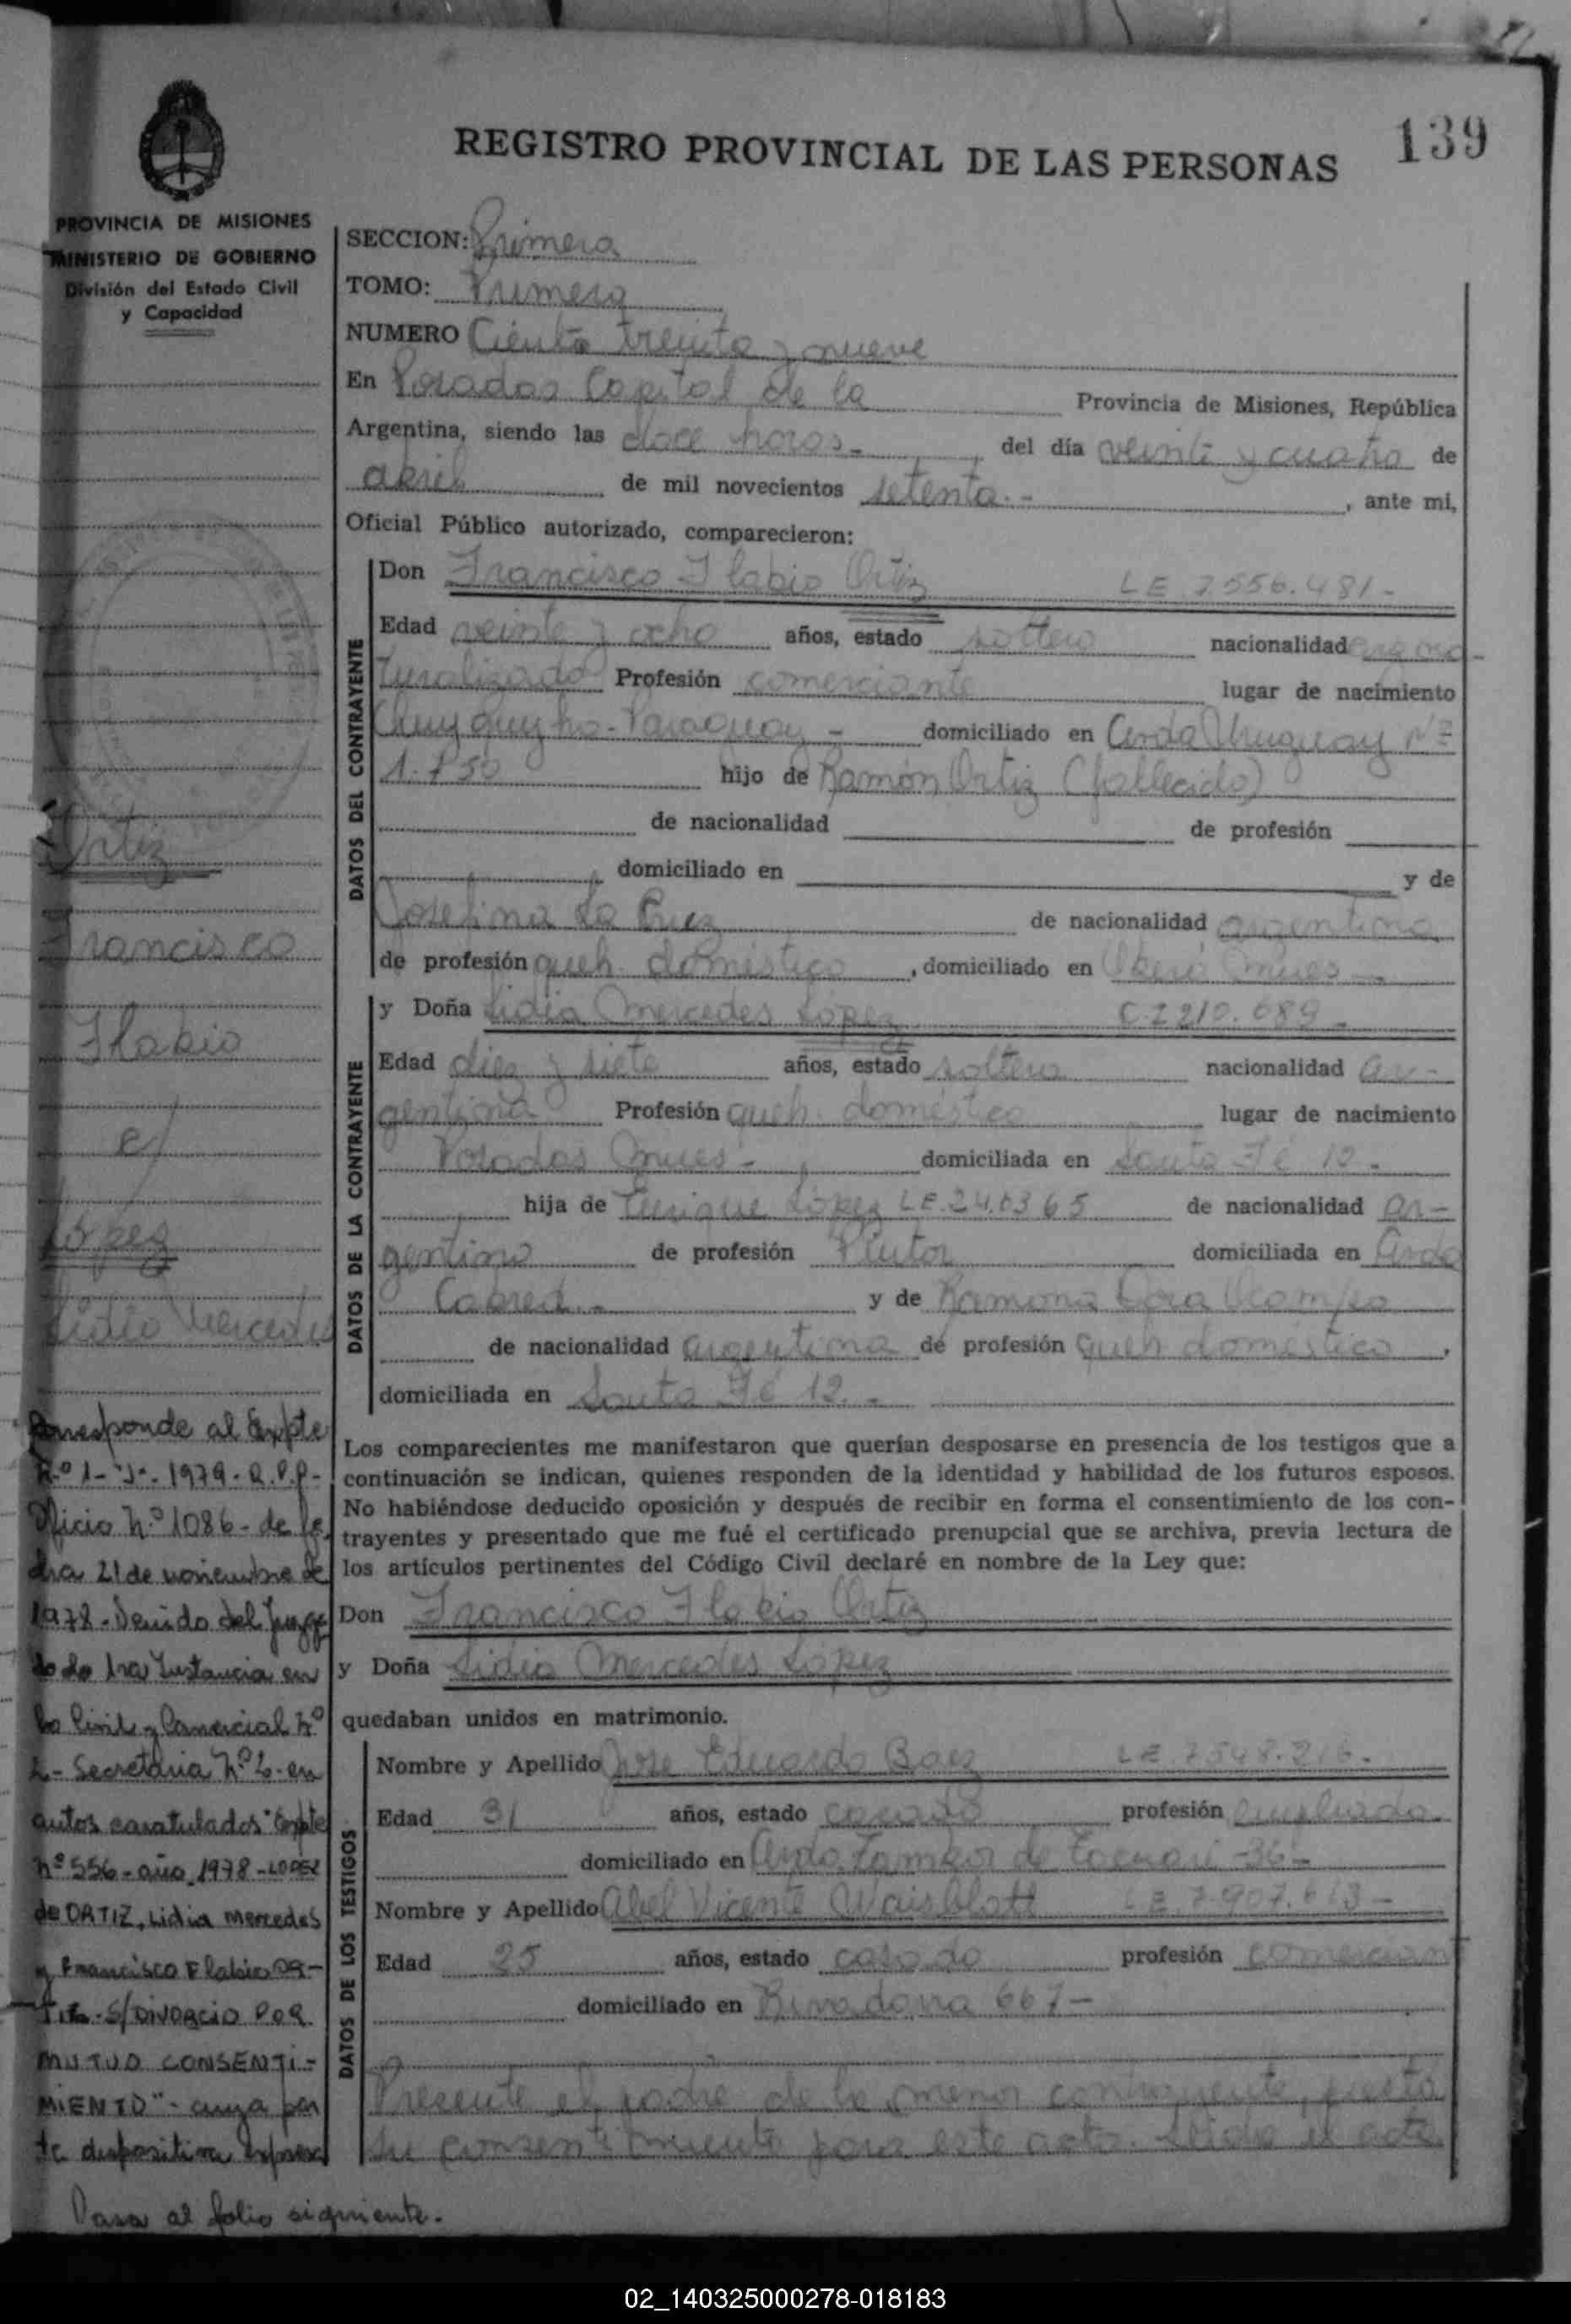 139
REGISTRO PROVINCIAL DE LAS PERSONAS
PROVINCIA DE MISIONES
MINISTERIO DE GOBIERNO
División del Estado Civil
y Capacidad
SECCION: Primera
TOMO: Primero
NUMERO Ciento treinta y nueve
En Posadas Capital de la Provincia de Misiones, República
Argentina, siendo las doce horas.- del día veinte y cuatro de
abril de mil novecientos setenta.-, ante mi,
Oficial Público autorizado, comparecieron:
DATOS DEL CONTRAYENTE
Don Francisco Flabio Ortiz LE 7.556.481-
Edad veinte y ocho años, estado soltero nacionalidad arg na-
turalizado Profesión comerciante lugar de nacimiento
Paraguay - domiciliado en Avda Uruguay Nº
1.750 hijo de Ramón Ortiz (fallecido)
de nacionalidad de profesión
domiciliado en y de
Josefina La Cruz de nacionalidad argentina
de profesión queh. doméstico, domiciliado en Oberá Mnes -
DATOS DE LA CONTRAYENTE
y Doña Lidia Mercedes López C I 210.689-
Edad diez y siete años, estado soltera nacionalidad ar-
gentina Profesión queh. doméstico lugar de nacimiento
Posadas Mnes - domiciliada en Santa Fé 12.
hija de Enrique López LE. de nacionalidad ar-
gentino de profesión Pintor domiciliada en Avda
Cabred.- y de Ramona Dora Ocampo
de nacionalidad argentina de profesión queh doméstico,
domiciliada en Santa Fé 12.-
Los comparecientes me manifestaron que querían desposarse en presencia de los testigos que a
continuación se indican, quienes responden de la identidad y habilidad de los futuros esposos.
No habiéndose deducido oposición y después de recibir en forma el consentimiento de los con-
trayentes y presentado que me fué el certificado prenupcial que se archiva, previa lectura de
los artículos pertinentes del Código Civil declaré en nombre de la Ley que:
Don Francisco Flabio Ortiz
y Doña Lidia Mercedes López
quedaban unidos en matrimonio.
DATOS DE LOS TESTIGOS
Nombre y Apellido José Eduardo Baez LE 7.548.216.
Edad 31 años, estado casado profesión empleado
domiciliado en Avda de Tacuari -36-
Nombre y Apellido Abel Vicente Waisblatt LE 7.907.613-
Edad 25 años, estado casado profesión comercian
domiciliado en Rivadavia 667-
Presente el padre de la menor contrayente, presta
su consentimiento para este acto. el acta
Ortiz
Francisco
Flabio
c/
López
Lidia Mercedes
Corresponde al Expte
Nº 1-"J"-1979-R.P.P-
Oficio Nº 1086- de fe-
cha 21 de noviembre de
1978- Venido del Juzga
do de 1ra Instancia en
lo Civil y Comercial Nº
2- Secretaria Nº 2- en
autos caratulados "Expte
nº 556-año 1978-LOPEZ
de ORTIZ, Lidia Mercedes
y Francisco Flabio OR-
TIZ-S/DIVORCIO POR
MUTUO CONSENTI-
MIENTO"- cuya par
te dispositiva expresa
Pasa al folio siguiente.
02_140325000278-018183